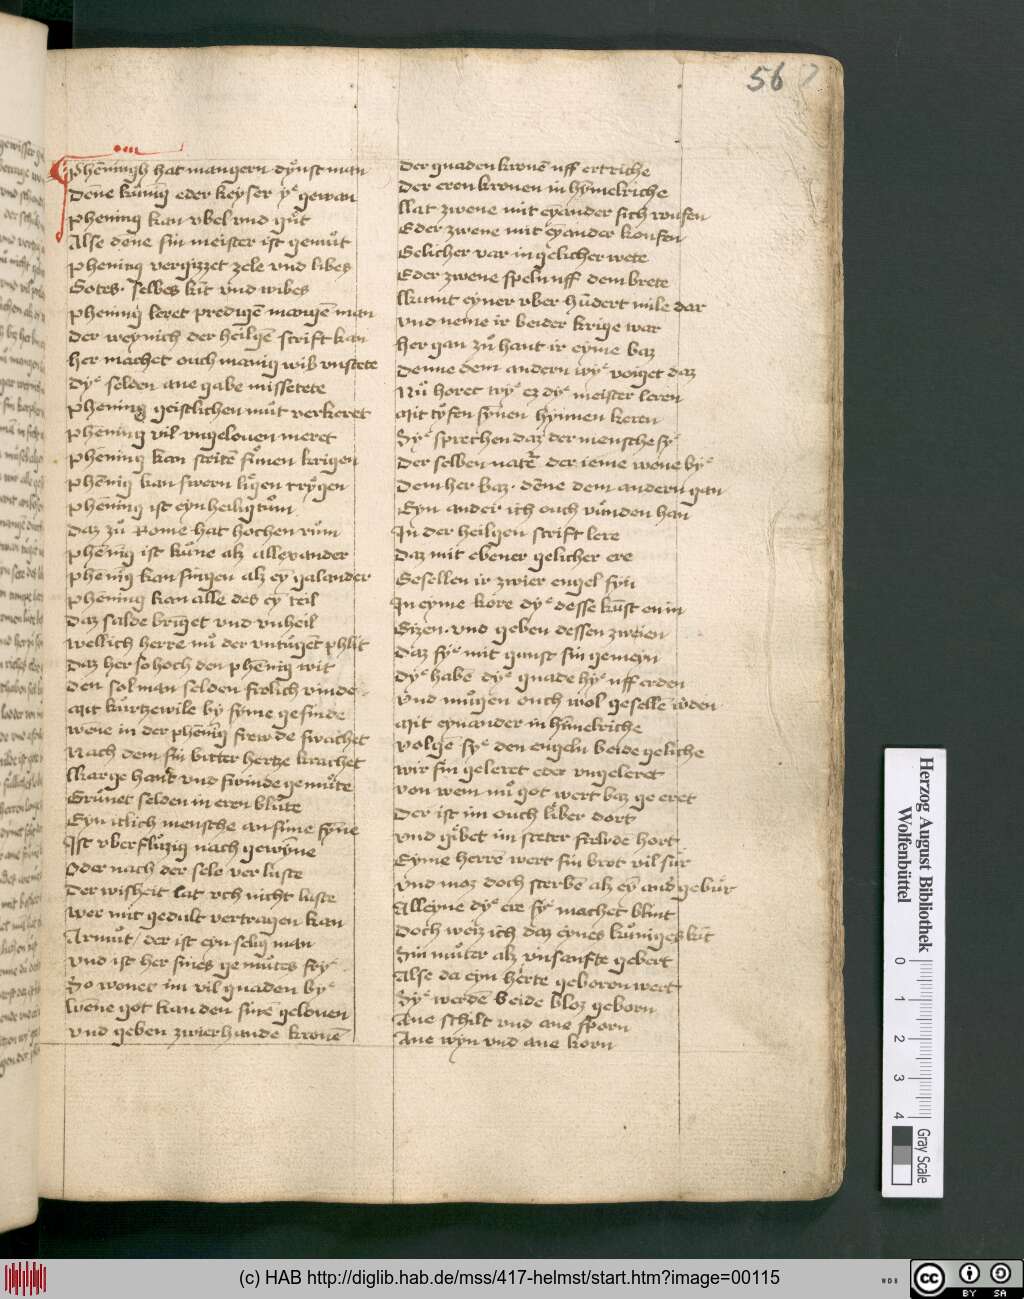 56
Phēningh hat mangern dynst man
Dēne kůnig eder keyser ye gewan
phening kan vbel vnd gůt
Alse dene sin meister ist gemůt
phening vergizzet zele vnd libes
Gotes selbes kīt vnd wibes
phening leret predigē mangē man
der weynich der heilgē scrift kan
her machet ouch manig wiß vnstete
dye selden ane gabe missetete
phening geistlichen můt verkeret
phēning vil vngelouen meret
phēning kan striten sůnen krigen
phēnig kan swern ligen trygen
phēning ist eyn heiligtům
Daz zů Rome hat hochen rům
phēnig ist kůne alz allexander
phēnig kan singen alz ey galander
phening kan alle des ey teil
Daz salde briget vnd vnheil
wellich herre nů der vntugēt phlit
Daz her so hoch den phēnig wit
den sol man selden frolich vinde
Mit kurtzewile by syme gesinde
wēne in der phēnīg frewde swachet
Nach dem sin bitter hertze krachet
Karge hant vnd swinde gemůte
Grůnet selden in eren blůte
Eyn itlich mensche an sime syne
Ist vberflůzig nach gewyne
Oder nach der sele verluste
Der wisheit lat vch nicht luste
Wer mit gedult vertragen kan
Armůt / der ist eyn selig man
Vnd ist her sines gemůtes frye
So wonet im vil gnaden bye
Wene got kan den sinē gelouen
vnd geben zwierhande kronē
Der gnaden kronē uff ertriche
Der eren kronen in hymelriche
Lat zwene mit eyander sich roufen
Eder zwene mit eyander koufen
Gelicher var in gelicher wete
Eder zwene speln uff dem brete
Kumt eyner vber hūdert mile dar
vnd neme ir beider krige war
her gan zů hant ir eyme baz
Denne dem andern wye voiget daz
Nů horet wye ez dye meister leren
Mit tyfen synen hynnen keren
Sye sprechen daz der mensche sye
Der selben nature der ieme wone bye
Dem her baz dēne dem andern gan
Eyn ander ich ouch vůnden han
In der heilgen scrift lere
Daz mit ebener gelicher ere
Gesellen ir zwier engel syn
In eyme kore dye desse kūst en in
Gizen vnd geben dessen zweien
Daz sye mit gunst sin gemeyn
dye habē dye gnade hye uff erden
Vnd můgen ouch wol geselle wden
Mit eynander in hīmelriche
Volgē sye den engeln beide geliche
wir sin geleret eder vngeleret
von wem nů got wert baz ge eret
Der ist im ouch liber dort
vnd gibet im steter frewde hort
Eyme herrē wert sin brot vil sůr
Vnd moz doch sterbē alz ey and' gebůr
Alleyne dye ere sye machet blint
Doch weiz ich daz eynes kůniges kīt
Sin můter alz vnsanfte gebert
Alse da eyn herte geboren wert
Sye werdē beide bloz geborn
Ane schilt vnd ane sporn
Ane wyn vnd ane korn
Herzog August Bibliothek
Wolfenbüttel
0 1 2 3 4
Gray Scale
(c) HAB http://diglib.hab.de/mss/417-helmst/start.htm?image=00115
WDB
cc BY SA